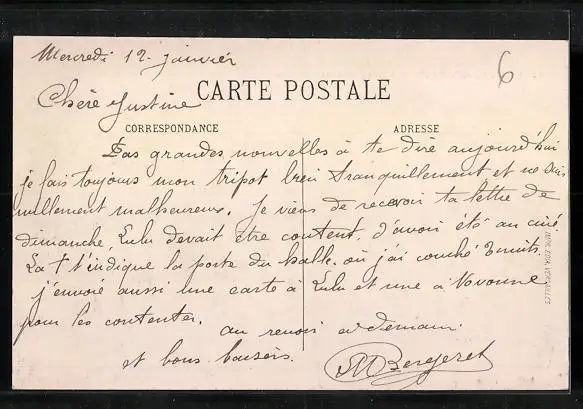 Mercredi 12 janvier
6
Chère Justine
CARTE POSTALE
CORRESPONDANCE
ADRESSE
Pas grandes nouvelles à te dire aujourd'hui
je fais toujours mon tripot bien tranquillement et ne suis
nullement malheureux. Je viens de recevoir ta lettre de
dimanche, Lulu devait être content d'avoir été au ciné
La † t'indique la porte du halle où j'ai couché 3 nuits
j'envoie aussi une carte à Lulu et une à Yvonne
pour les contenter.
au revoir a demain
et bons baisers.
M Bergeret
IMP. EDIA VERSAILLES